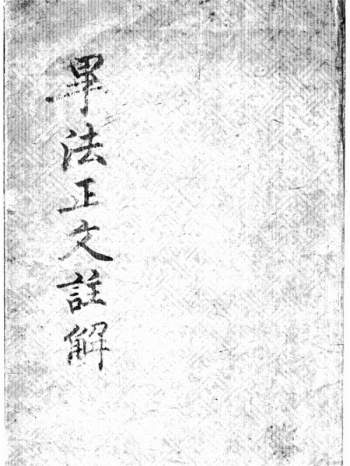 畢法正文註解